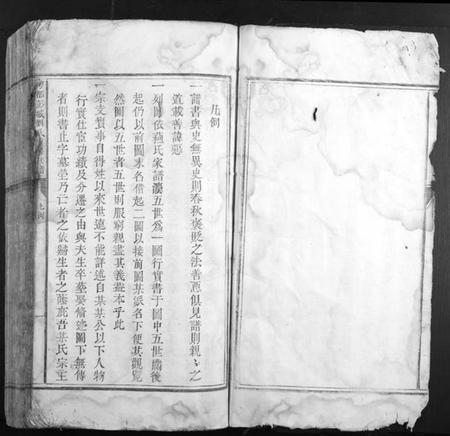 凡例
一譜書與史無異史則春秋褒貶之法善惡俱見譜則親〻之
道載善諱惡
一列圖依蘇氏家譜譔五世為一圖行實書于圖中五世齊後
起仍以前圖末名借起二圖以接前圖某派名下使其觀覽
然圖以五世者五世則服窮親盡其義蓋本乎此
一宗支實事自得姓以來世遠不能詳述自某某公以下人物
行實仕宦功績及分遷之由與夫生卒墓娶備述圖下無傳
者則書止字墓塋乃亡者之依歸生者之蔭庇吾某氏宗主